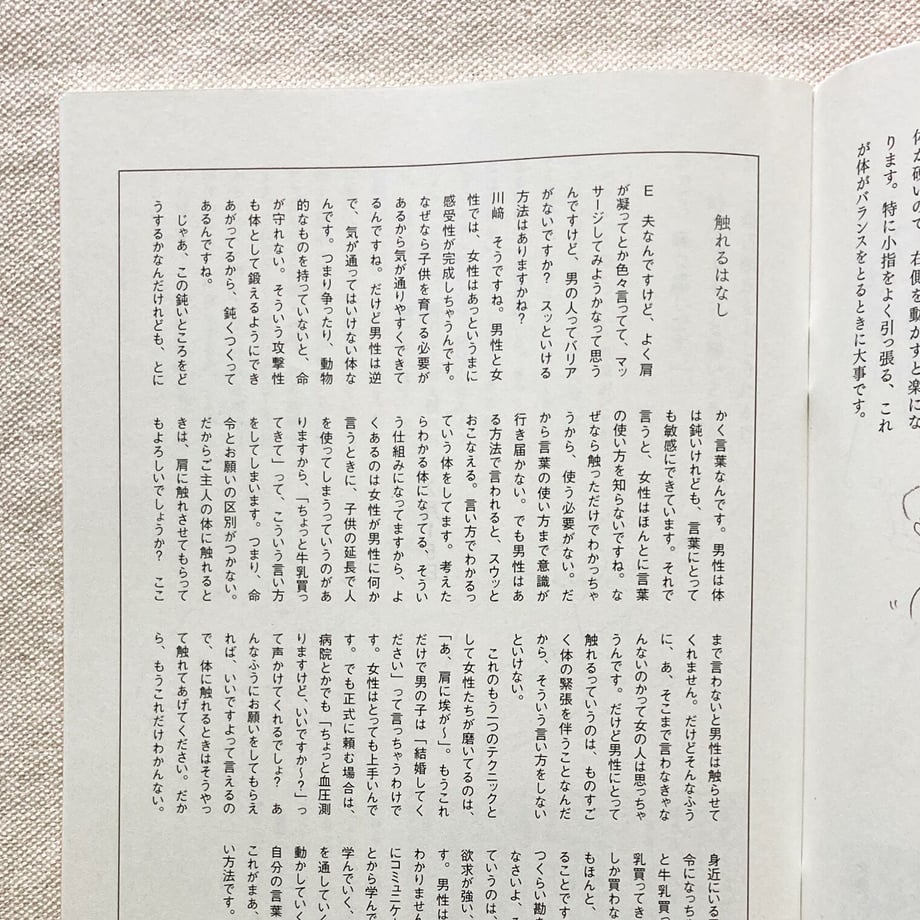 体が硬いので、右側を動かすと楽にな
ります。特に小指をよく引っ張る、これ
が体がバランスをとるときに大事です。
触れるはなし
E　夫なんですけど、よく肩
が凝ってとか色々言ってて、マッ
サージしてみようかなって思う
んですけど、男の人ってバリア
がないですか？　スッといける
方法はありますかね？
川﨑　そうですね。男性と女
性では、女性はあっというまに
感受性が完成しちゃうんです。
なぜなら子供を育てる必要が
あるから気が通りやすくできて
るんですね。だけど男性は逆
で、気が通ってはいけない体な
んです。つまり争ったり、動物
的なものを持っていないと、命
が守れない。そういう攻撃性
も体として鍛えるようにでき
あがってるから、鈍くつくって
あるんですね。
　じゃあ、この鈍いところをど
うするかなんだけれども、とに
かく言葉なんです。男性は体
は鈍いけれども、言葉にとって
も敏感にできています。それで
言うと、女性はほんとに言葉
の使い方を知らないですね。な
ぜなら触っただけでわかっちゃ
うから、使う必要がない。だ
から言葉の使い方まで意識が
行き届かない。でも男性はあ
る方法で言われると、スウッと
おこなえる。言い方でわかるっ
ていう体をしてます。考えた
らわかる体になってる、そうい
う仕組みになってますから、よ
くあるのは女性が男性に何か
言うときに、子供の延長で人
を使ってしまうっていうのがあ
りますから、「ちょっと牛乳買っ
てきて」って、こういう言い方
をしてしまいます。つまり、命
令とお願いの区別がつかない。
だからご主人の体に触れると
きは、肩に触れさせてもらって
もよろしいでしょうか？　ここ
まで言わないと男性は触らせて
くれません。だけどそんなふう
に、あ、そこまで言わなきゃな
んないのかって女の人は思っちゃ
うんです。だけど男性にとって
触れるっていうのは、ものすご
く体の緊張を伴うことなんだ
から、そういう言い方をしない
といけない。
　これのもう一つのテクニックと
して女性たちが磨いてるのは、
「あ、肩に埃が〜」。もうこれ
だけで男の子は「結婚してく
ださい」って言っちゃうわけで
す。女性はとっても上手いんで
す。でも正式に頼む場合は、
病院とかでも「ちょっと血圧測
りますけど、いいですか〜？」っ
て声かけてくれるでしょ？　あ
んなふうにお願いをしてもらえ
れば、いいですよって言えるの
で、体に触れるときはそうやっ
て触れてあげてください。だか
ら、もうこれだけわかんない。
身近にいる
令になっち
と牛乳買っ
乳買ってき
しか買わな
もほんと、
ることです
つくらい勘
なさいよ、
ていうのは、
欲求が強い、
す。男性は
わかりません
にコミュニケ
とから学んで
学んでいく、
を通していく
動かしていく
自分の言葉
これがまあ、
い方法です。